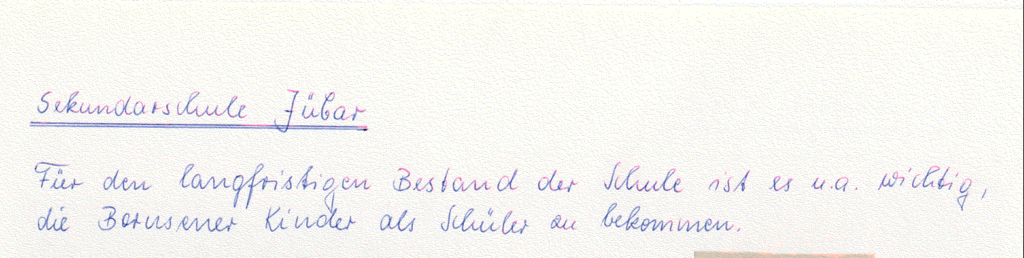 Sekundarschule Jübar
Für den langfristigen Bestand der Schule ist es u.a. wichtig,
die Bornsener Kinder als Schüler zu bekommen.